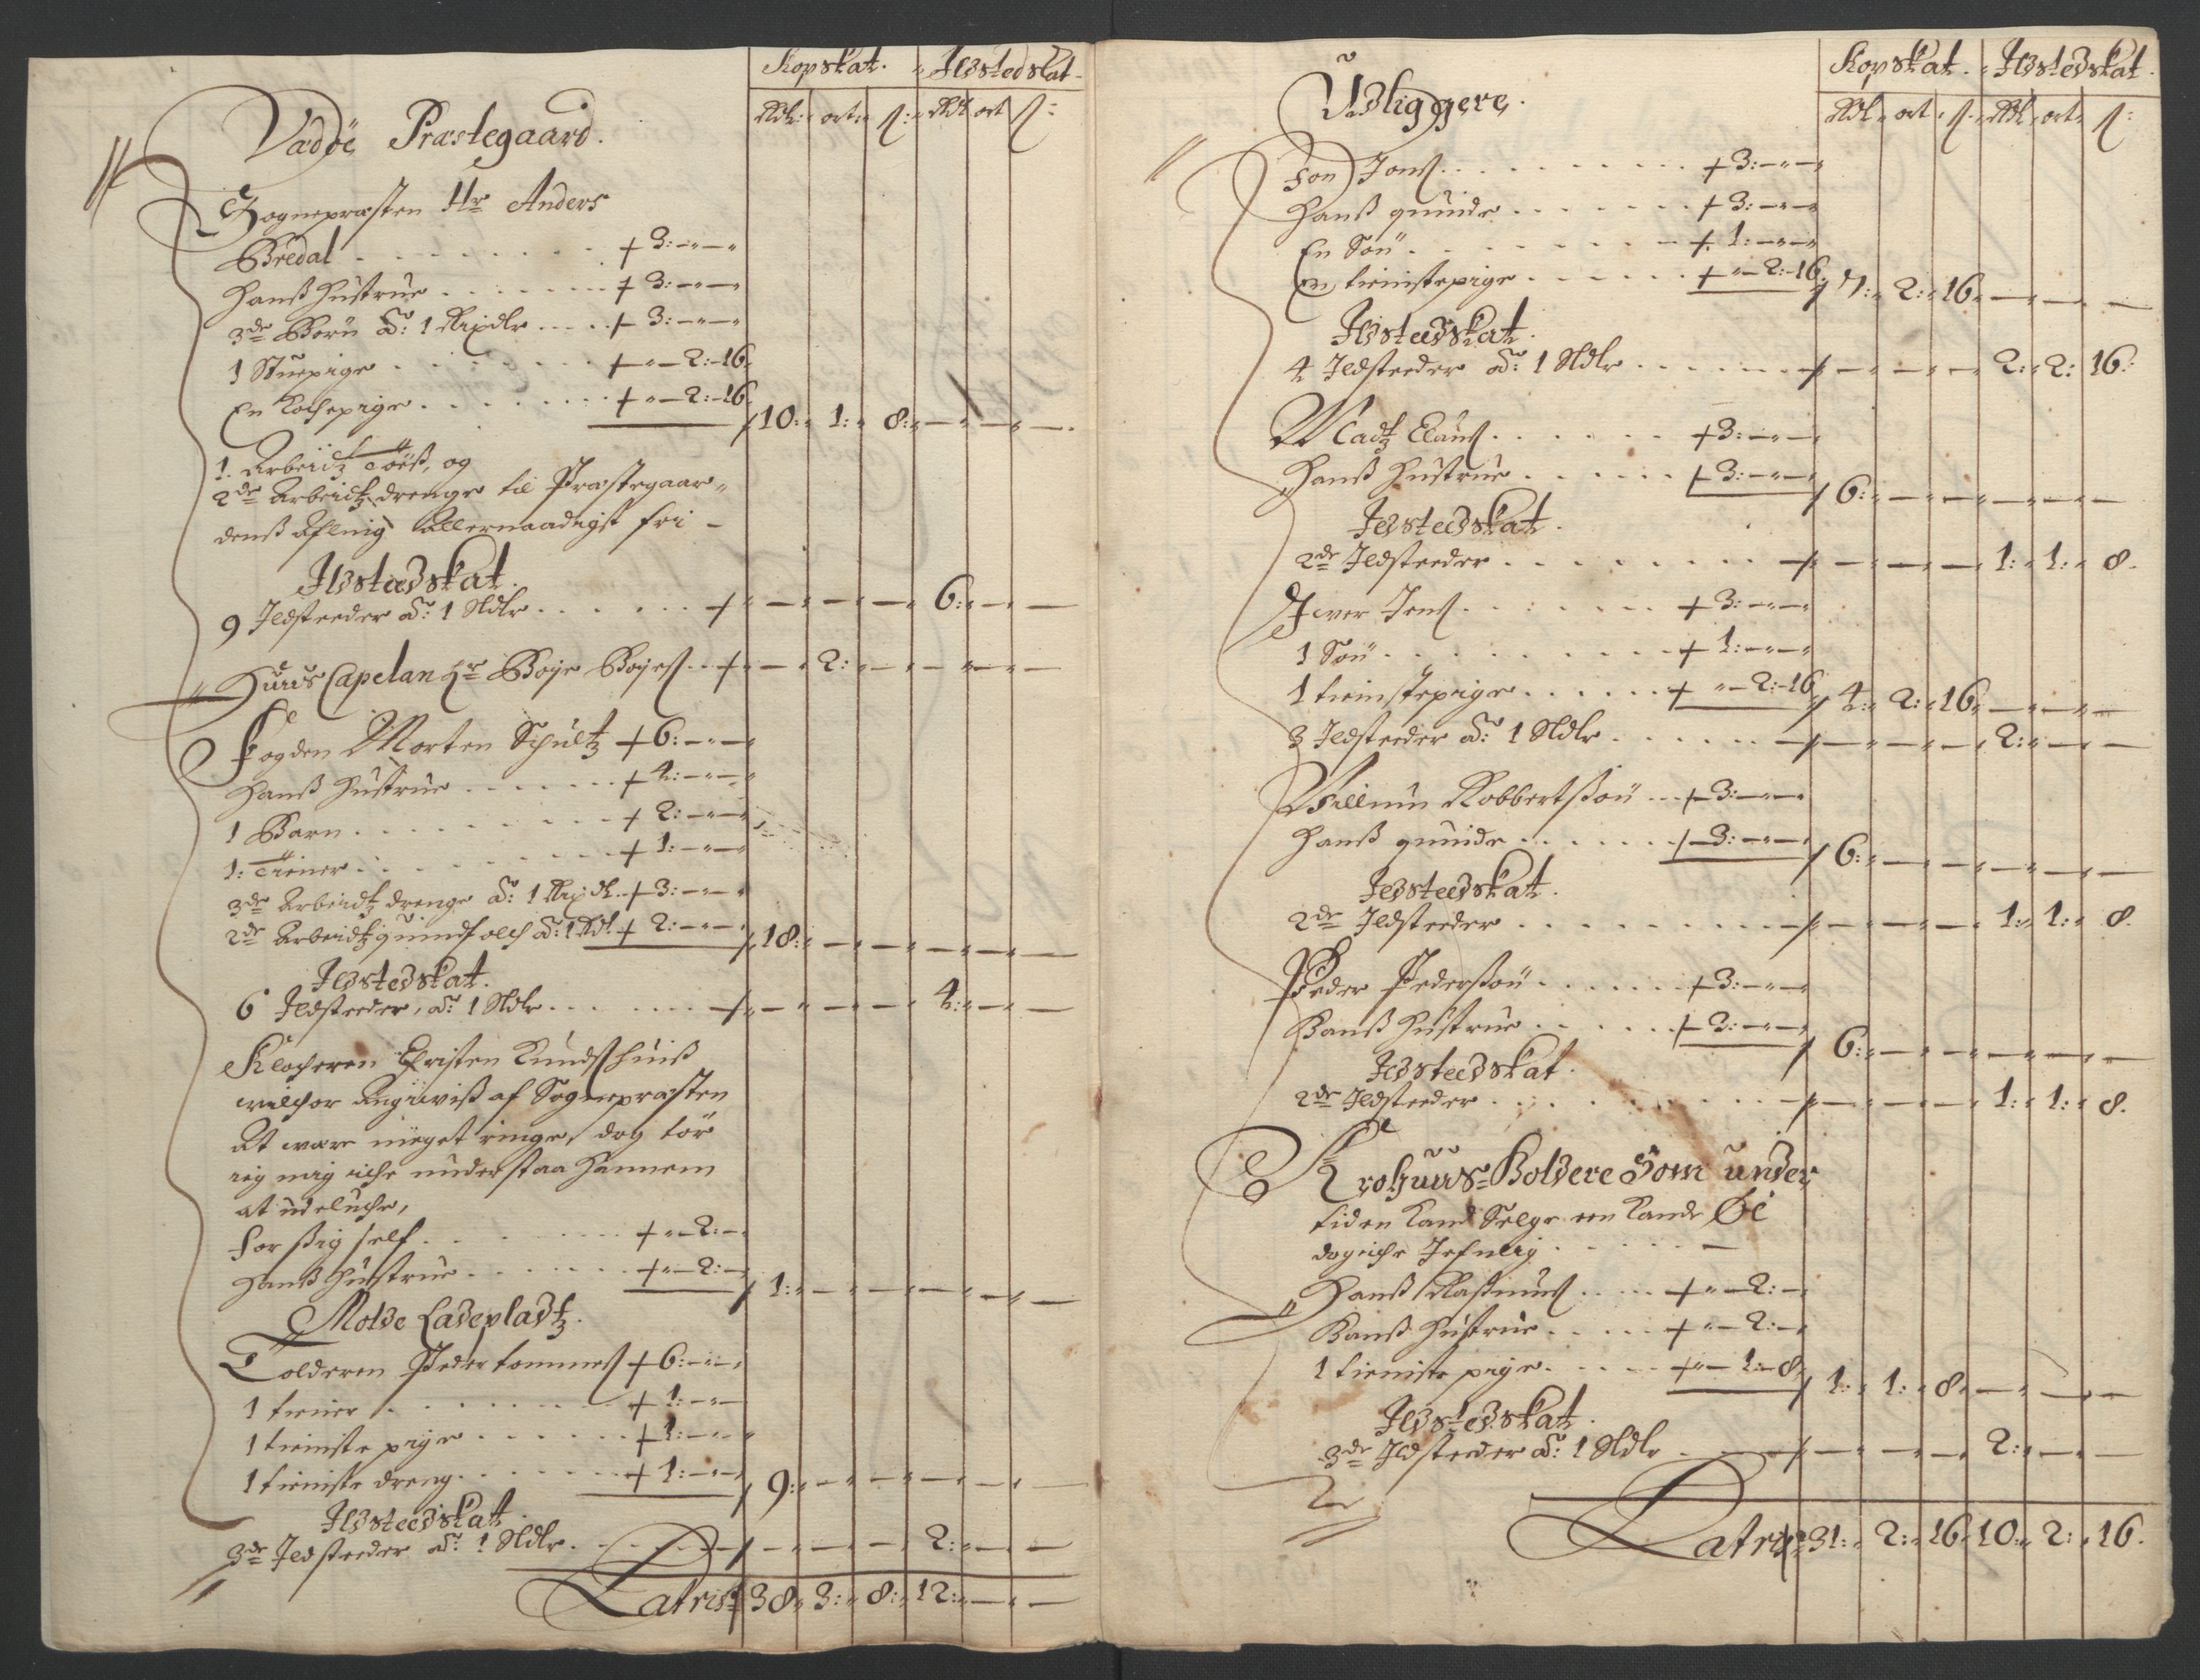 Kopskat. Ildstedskat
Rdl: ort ß: Rdl ort ß:
Vadöe Præstegaard.
Sognepræsten Hr Anders
Bredal + 3: - -
Hanß Hustrue + 3: - -
3de Börn â: 1 Rixdlr + 3: - -
1 Stuepige + - 2: 16
En Kochepige + - 2: 16 10: 1: 8: - - -
1. Arbeidtz og
2de Arbeidtz drenge til Præstegaar-
denß Afling Allernaadigst fri -
Ildstedskat.
9 Ildsteeder â: 1 Sldlr + - - - 6: - -
Huus Capelan Hr Boye Boyeß + - 2: - - - -
Fogden Morten Schultz + 6: - -
Hanß Hustrue + 4: - -
1 Barn + 2: - -
1: Tiener + 1: - -
3de Arbeidtz drenge â: 1 Rixdl + 3: - -
2de Arbeidtzquindfolch â: 1 Rdl + 2: - - 18: - - - - -
Ildstedskat.
6 Ildsteeder, â: 1 Sldlr + - - - 4: - -
Klocheren Christen Knudß huiß
wilchor Angiwiß af Sognepræsten
At være meget ringe, dog tör
ieg mig iche understaa hannem
at udeluche,
for ßig self + - 2: -
Hanß Hustrue + - 2: - 1: - - - - -
Molde Ladepladtz.
Tolderen Peder Tommeß + 6: - -
1 tiener + 1: - -
1 tieniste pige + 1: - -
1 tieniste dreng + 1: - - 9: - - - - -
Ildstedskat
3de Ildsteeder â: 1 Sldlr - - - 2: - -
Latris: 38: 3: 8: 12: - -
Kopskat. Ildstedskat.
Rdl ort ß. Rdl ort ß:
Udliggere.
Jon Jonß + 3: - -
Hanß quinde + 3: - -
En Sön + 1: - -
En tienistepige + - 2: 16 7: 2: 16 - - -
Ildstedskat.
4 Ildsteeder â: 1 Sldlr - - - 2: 2: 16:
Madtz Clauß + 3: - -
Hanß Hustrue + 3: - - 6: - - - - -
Ildstedskat.
2de Ildsteeder - - - 1: 1: 8.
Iver Jenß + 3: - -
1 Sön + 1: - -
1 tienistepige + - 2: 16 4: 2: 16 - - -
3 Ildsteeder â: 1 Sldlr - - - 2: - -
Villum Robbertßön + 3: - -
Hanß quinde + 3: - - 6: - - - - -
Ildstedskat.
2de Ildsteeder - - - 1: 1: 8.
Peder Pederßön + 3: - -
Hanß Hustrue + 3: - - 6: - - - - -
Ildstedskat.
2de Ildsteeder - - - 1: 1: 8.
Krohuus-Holdere Som under
tiden Kand Selge een Kande Öl
dog iche Jefnlig -
Hanß Raßmuß + - 2: -
Hanß Hustrue + - 2: -
1 tieniste pige + - 1: 8 1: 1: 8 - - -
Ildstedskat.
3de Ildsteeder â: 1 Sldlr - - - 2: - -
Latris: 31: 2: 16 10: 2: 16.